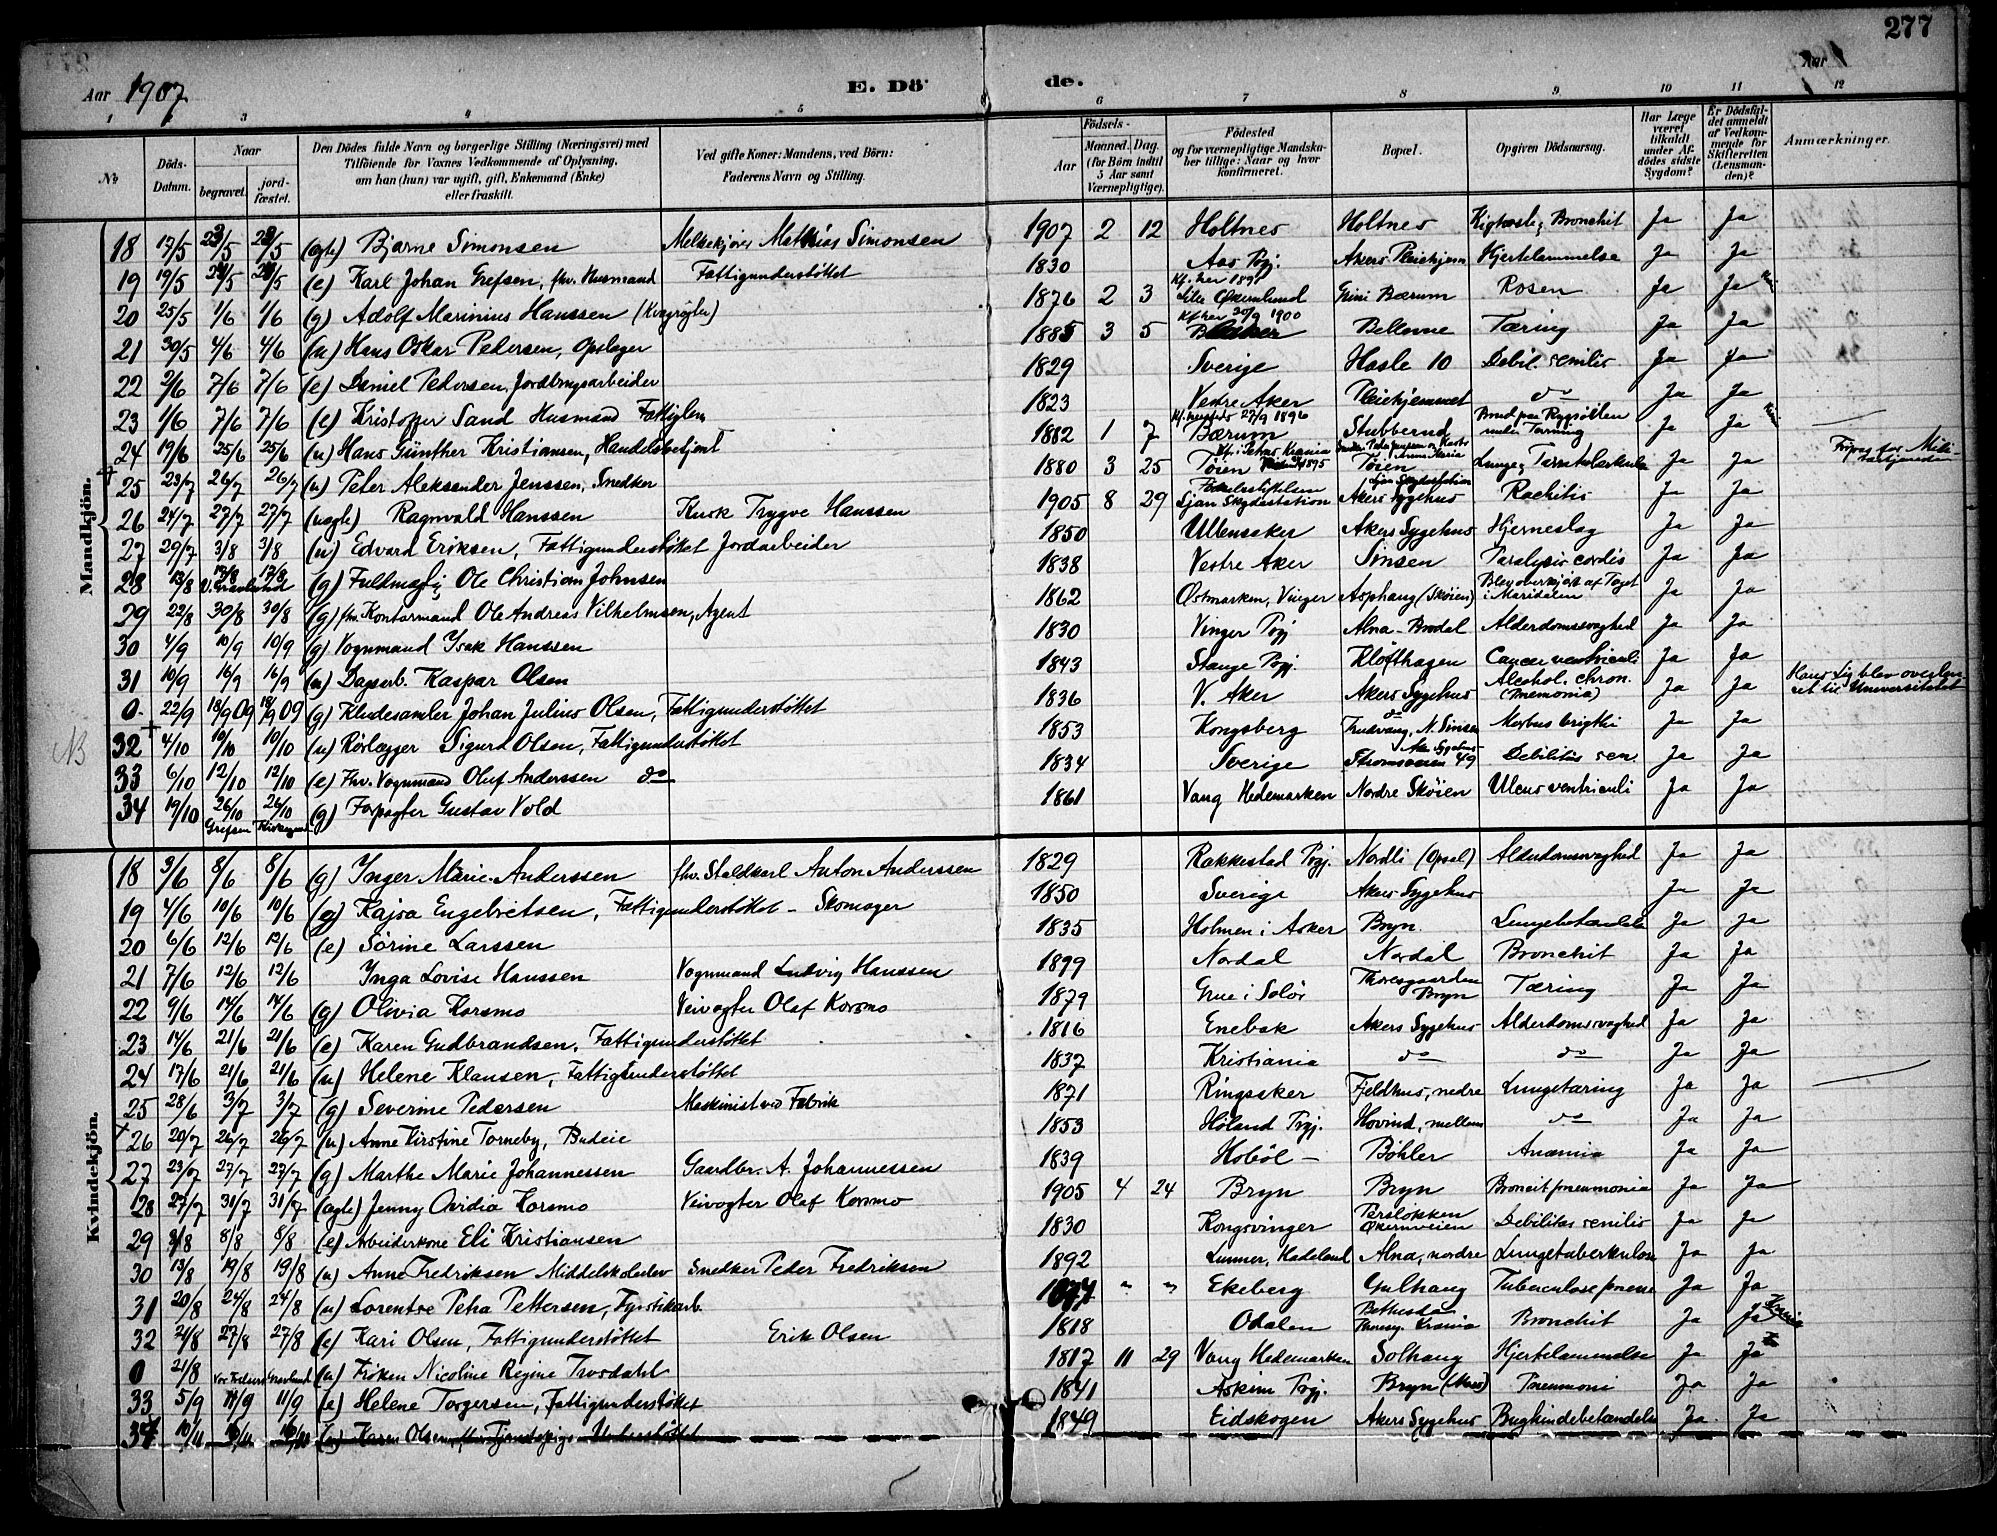 277
Aar 1907 E. Dö de. Aar
1 3 4 5 6 7 8 9 10 11 12
No
Döds-Datum.
Naar
begravet. jord-fæstet.
Den Dödes fulde Navn og borgerlige Stilling (Næringsvei) med
Tilföiende for Voxnes Vedkommende af Oplysning,
om han (hun) var ugift, gift, Enkemand (Enke)
eller fraskilt.
Ved gifte Koner: Mandens, ved Börn:
Faderens Navn og Stilling.
Födsels-
Aar
Maaned. Dag.
(for Börn indtil
5 Aar samt
Værnepligtige).
Födested
og for værnepligtige Mandska-
ber tillige: Naar og hvor
konfirmeret.
Bopæl.
Opgiven Dödsaarsag.
Har Læge
været
tilkaldt
under Af-
dödes sidste
Sygdom?
Er Dödsfal-
det anmeldt
af Vedkom-
mende for
Skifteretten
(Lensman-
den)?
Anmærkninger.
Mandkjön.
18 17/5 23/5 23/5 (ægte) Bjarne Simonsen Melkekjører Mathias Simonsen 1907 2 12 Holtnes Holtnes Kighoste, Bronchit Ja Ja
19 19/5 24/5 24/5 (e) Karl Johan Grefsen, fhv. Husmand Fattigunderstøttet 1830 Aas Pgj. Akers Pleiehjem Hjertelammelse Ja Ja
20 25/5 1/6 1/6 (g) Adolf Marinius Hanssen (Kvægrøgter) 1876 2 3 Kf. her 1891 Lille Økernlund Grini Bærum Rosen Ja Ja
21 30/5 4/6 4/6 (u) Hans Oskar Pedersen, Opslager 1885 3 5 Kf her 30/9 1900 Bellevue Tæring Ja Ja
22 2/6 7/6 7/6 (e) Daniel Pedersen, Jordbrugsarbeider 1829 Sverige Hasle 10 Debil. senilis Ja Ja
23 1/6 7/6 7/6 (e) Kristoffer Sand Husmand Fattiglem 1823 Vestre Aker Pleiehjemmet do Ja Ja
24 19/6 25/6 25/6 (u) Hans Günther Kristiansen, Handelsbetjent 1882 1 7 27/9 1896 Bærum Stubberud Brud paa Rygsøilen Ja Ja
25 23/7 26/7 26/7 (u) Peter Aleksander Jenssen, Snedker 1880 3 25 Tøien 1895 Tøien Lunge, Tarmtuberkulose Ja Ja
26 24/7 27/7 27/7 (uægte) Ragnvald Hanssen Kusk Trygve Hanssen 1905 8 29 Fødselsstiftelsen Ljan Skydsstation Akers Sygehus Rachitis Ja Ja
27 29/7 3/8 3/8 (u) Edvard Eriksen, Fattigunderstøttet Jordarbeider 1850 Ullensaker Akers Sygehus Hjerneslag Ja Ja
28 13/8 17/8 17/8 V. Gravlund (g) Fuldmægtig Ole Christian Johnsen 1838 Vestre Aker Sinsen Paralysis cordis Ja Ja
29 22/8 30/8 30/8 (g) fhv. Kontormand Ole Andreas Vilhelmsen, Agent 1862 Østmarken, Vinger Asphaug (Skøien) Blev overkjørt af Toget i Maridalen Ja Ja
30 4/9 10/9 10/9 (g) Vognmand Isak Hanssen 1830 Vinger Pgj Alna-Brodal Alderdomssvaghed Ja Ja
31 10/9 16/9 16/9 (u) Dagarb. Kaspar Olsen 1843 Stange Pgj. Kløfthagen Cancer ventriculi Ja Ja
0 22/9 18/9 09 18/9 09 (g) Kludesamler Johan Julius Olsen, Fattigunderstøttet 1836 V. Aker Akers Sygehus Alcohol. chron. (Pnemonia) Ja Ja Hans Lig blev overleveret til Universitetet
NB 32 4/10 10/10 10/10 (u) Rørlægger Sigurd Olsen, Fattigunderstøttet 1853 Kongsberg do Trudvang, N. Sinsen Morbus brigthi Ja Ja
33 6/10 12/10 12/10 (e) Fhv. Vognmand Oluf Anderssen do 1834 Sverige Akers Sygehus Strømsveien 49 Debilitas sen. Ja Ja
34 19/10 26/10 26/10 Grefsen Kirkegaard (g) Forpagter Gustav Vold 1861 Vang Hedemarken Nordre Skøien Ulcus ventriculi Ja Ja
Kvindekjön.
18 3/6 8/6 8/6 (g) Inger Marie Anderssen fhv. Staldkarl Anton Anderssen 1829 Rakkestad Pgj. Nordli (Opsal) Alderdomssvaghed Ja Ja
19 4/6 10/6 10/6 (g) Kajsa Engebretsen, Fattigunderstøttet - Skomager 1850 Sverige Akers Sygehus Ja Ja
20 6/6 12/6 12/6 (e) Sørine Larssen 1835 Holmen i Asker Bryn. Lungebetændelse Ja Ja
21 7/6 12/6 12/6 Inga Lovise Hanssen Vognmand Ludvig Hanssen 1899 Nordal Nordal Bronchit Ja Ja
22 9/6 14/6 14/6 (g) Olivia Korsmo Veivogter Olaf Korsmo 1879 Grue i Solør Thoresgaarden Bryn Tæring Ja Ja
23 14/6 21/6 21/6 (e) Karen Gudbrandsen, Fattigunderstøttet 1816 Enebak Akers Sygehus Alderdomssvaghed Ja Ja
24 17/6 21/6 21/6 (u) Helene Klausen, Fattigunderstøttet 1837 Kristiania do do Ja Ja
25 28/6 3/7 3/7 (g) Severine Pedersen Maskinist ved Fabrik 1871 Ringsaker Fjeldhus, nedre Lungetæring Ja Ja
26 20/7 26/7 26/7 (u) Anne Kirstine Torneby, Budeie 1853 Høland Pgj. Hovind, mellem do Ja Ja
27 23/7 27/7 27/7 (g) Marthe Marie Johannessen Gaardbr. A. Johannessen 1839 Hobøl - Bøhler Anæmia Ja Ja
28 27/7 31/7 31/7 (ægte) Jenny Ovidia Korsmo Veivogter Olaf Korsmo 1905 4 24 Bryn Bryn Broncit pneumonia Ja Ja
29 8/8 8/8 (e) Arbeiderkone Eli Kristiansen 1830 Kongsvinger Persløkken Økernveien Debilitas senilis Ja Ja
30 13/8 19/8 19/8 (u) Anne Fredriksen Middelskoleelev Snedker Peder Fredriksen 1892 Lunner, Hadeland Alna, nordre Lungetuberkulose Ja Ja
31 20/8 24/8 24/8 (u) Lorentse Petra Pettersen, Fyrstikarb. " " Ekeberg Gulhaug Tuberculose pneum Ja Ja
32 24/8 27/8 27/8 (e) Kari Olsen, Fattigunderstøttet Erik Olsen 1818 Odalen Bronchit Ja Ja
0 21/8 Vor Frelsers Gravlund (u) Frøken Nicoline Regine Trosdahl 1817 11 29 Vang Hedemarken Solhaug Hjertelammelse Ja Ja
33 5/9 11/9 11/9 (e) Helene Torgersen, Fattigunderstøttet 1841 Askim Pgj. Bryn Pneumoni Ja Ja
34 10/11 16/11 (u) Karen Olsen, fhv Tjenestepige Understøttet 1849 Eidskogen Akers Sygehus Bughindebetændelse Ja Ja